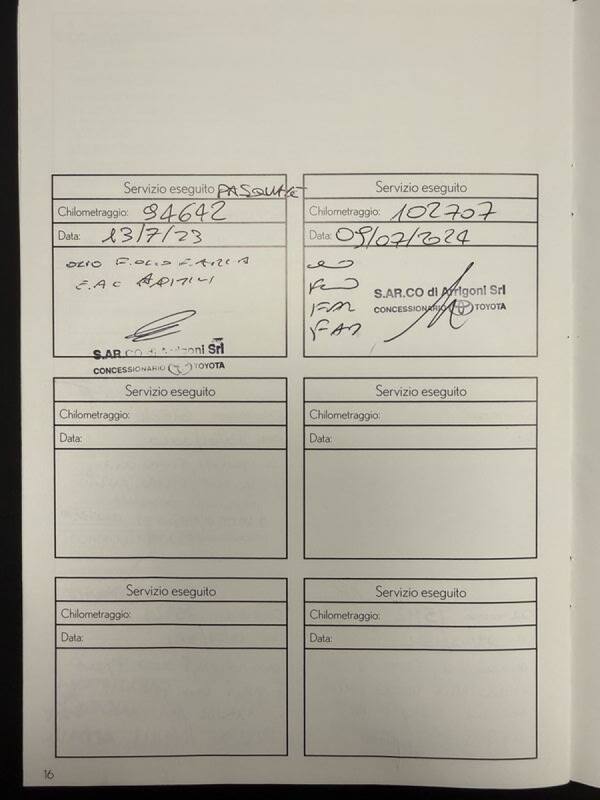 Servizio eseguito PASQUALE
Chilometraggio: 94642
Data: 13/7/23
OLIO F.OLIO F.ARIA
F.AC ADITIVI
S.AR.CO di Arrigoni Srl
CONCESSIONARIO TOYOTA
Servizio eseguito
Chilometraggio: 102707
Data: 09/07/2024
S.AR.CO di Arrigoni Srl
CONCESSIONARIO TOYOTA
Servizio eseguito
Chilometraggio:
Data:
Servizio eseguito
Chilometraggio:
Data:
Servizio eseguito
Chilometraggio:
Data:
Servizio eseguito
Chilometraggio:
Data:
16